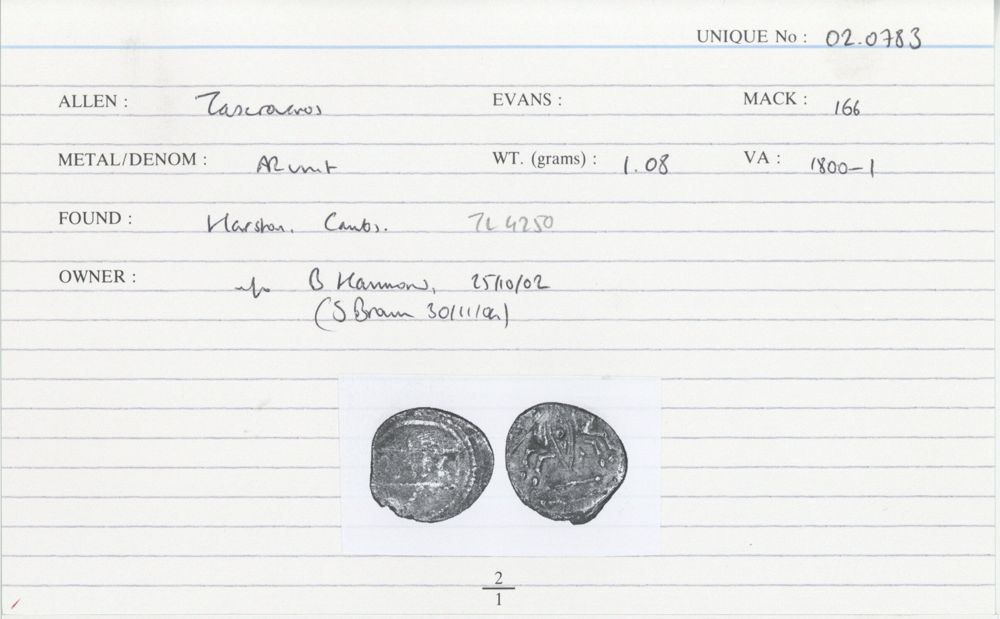 UNIQUE No : 02.0783
ALLEN : Tasciovanos EVANS : MACK : 166
METAL/DENOM : AR unit WT. (grams) : 1.08 VA : 1800-1
FOUND : Harston, Cambs. TL 4250
OWNER : B Hammond, 25/10/02
(S Brown 30/11/02)
2
1